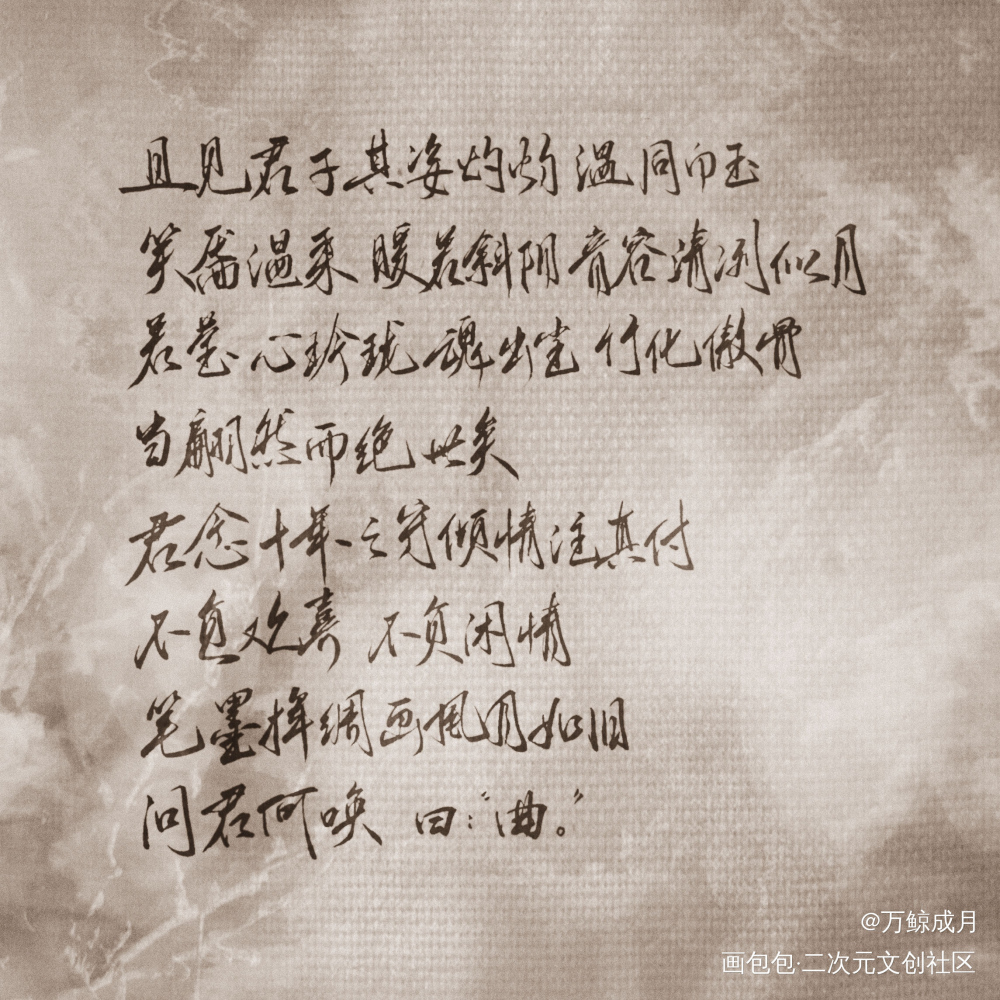 且见君子其姿灼灼 温同而玉
笑靥温柔 暖若斜阴 音容清冽似月
若莹心玲珑 魂出尘 竹化傲骨
当翩然而绝世矣
君念十年之守倾情注真付
不负欢喜 不负闲情
笔墨挥绸画风月如旧
问君何唤 曰：“曲。”
@万鲸成月
画包包·二次元文创社区